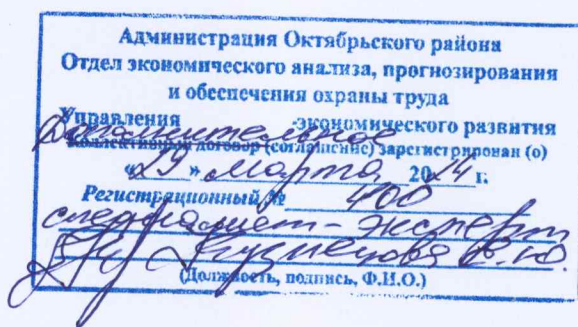 Администрация Октябрьского района
Отдел экономического анализа, прогнозирования
и обеспечения охраны труда
Управления экономического развития
Дополнительное
Коллективный договор (соглашение) зарегистрирован (о)
«29» марта 2024 г.
Регистрационный № 400
специалист-эксперт
Кузнецова В.Ю.
(Должность, подпись, Ф.И.О.)